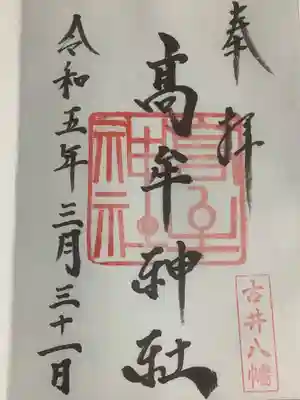 奉拝
古井八幡
高牟神社
高牟神社
令和五年三月三十一日